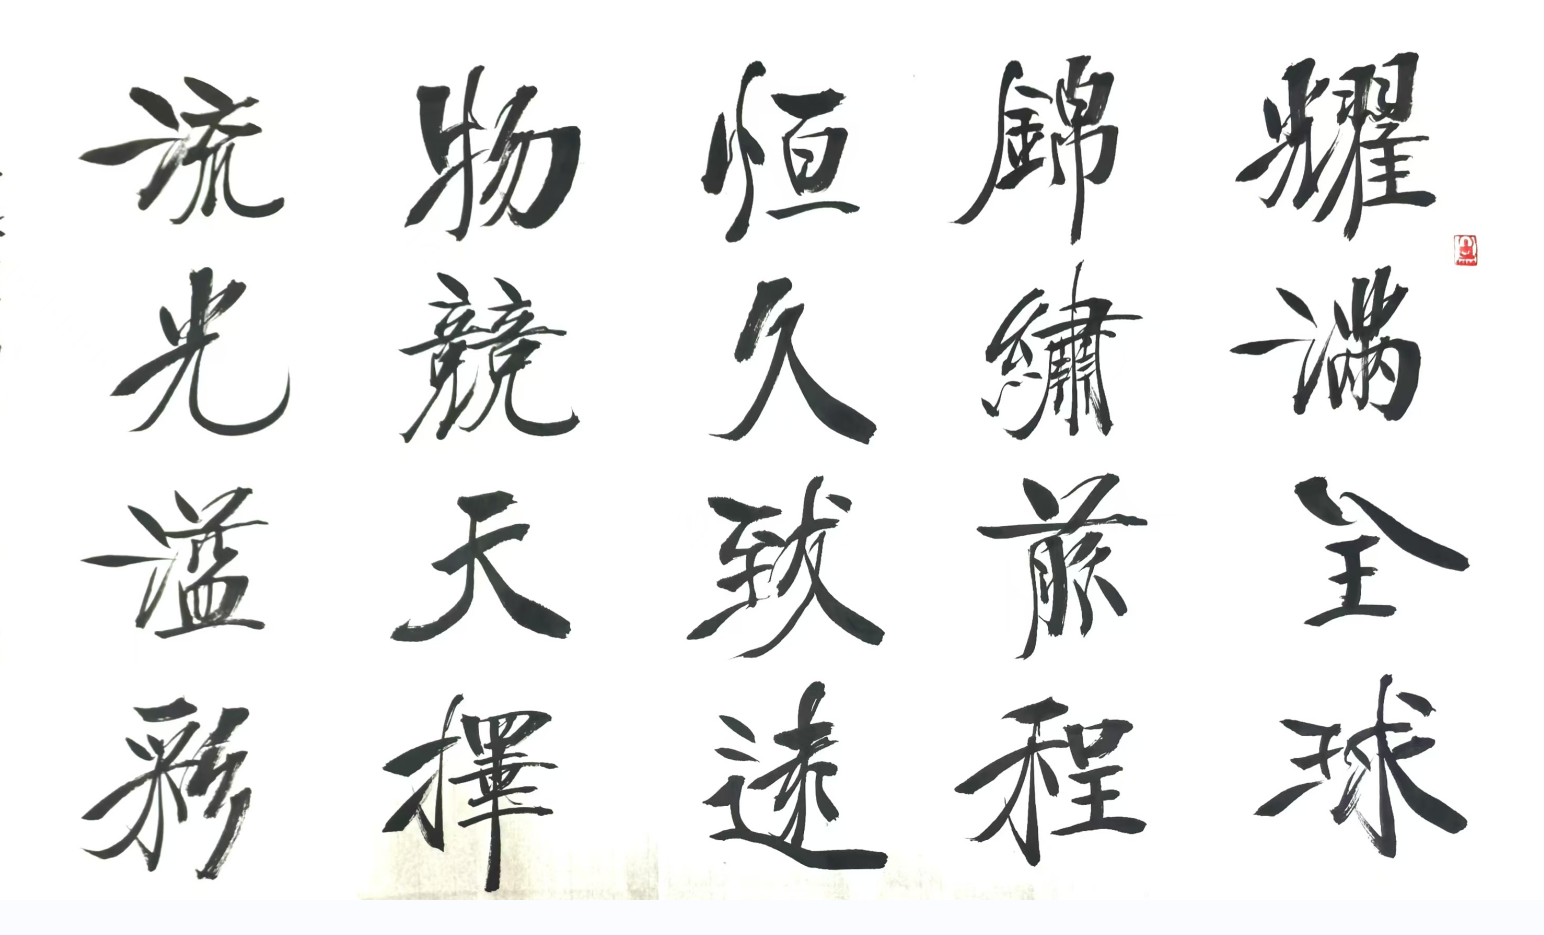 耀滿全球
錦繡前程
恒久致遠
物競天擇
流光溢彩